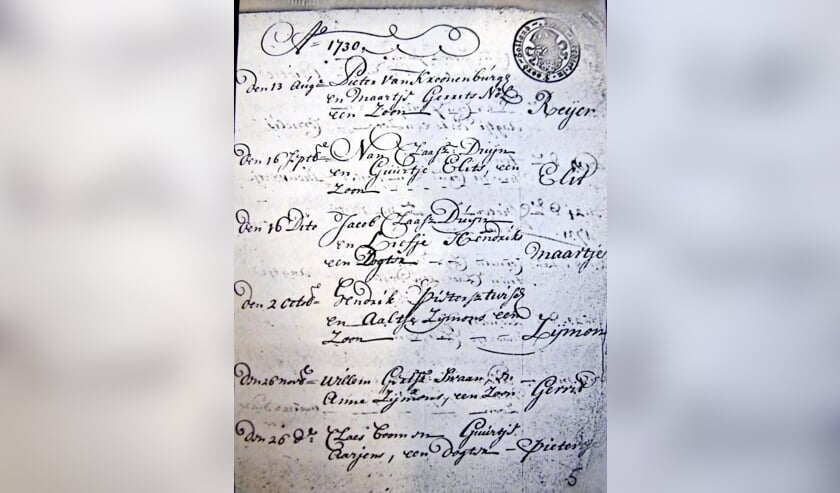 Ao 1730
Den 13 Augs Pieter van Kroonenburg
en Maartje Gerrits
een Zoon Reijer
Den 16 Claasz Duijn
en Guurtje Elits, een
Zoon Elit
Den 16 Dito Jacob Claasz Duijn
en Liefje Hendriks
een Dogter Maartje
Den 2 octobr Hendrik
en Aaltje Zijmons een
Zoon Zijmon
Den 26 novbr Willem Swaan, en
Anne Zijmons, een Zoon Gerrit
Den 26 do Claes Boom en Guurtje
Aarjens, een Dogter Pietertje
5